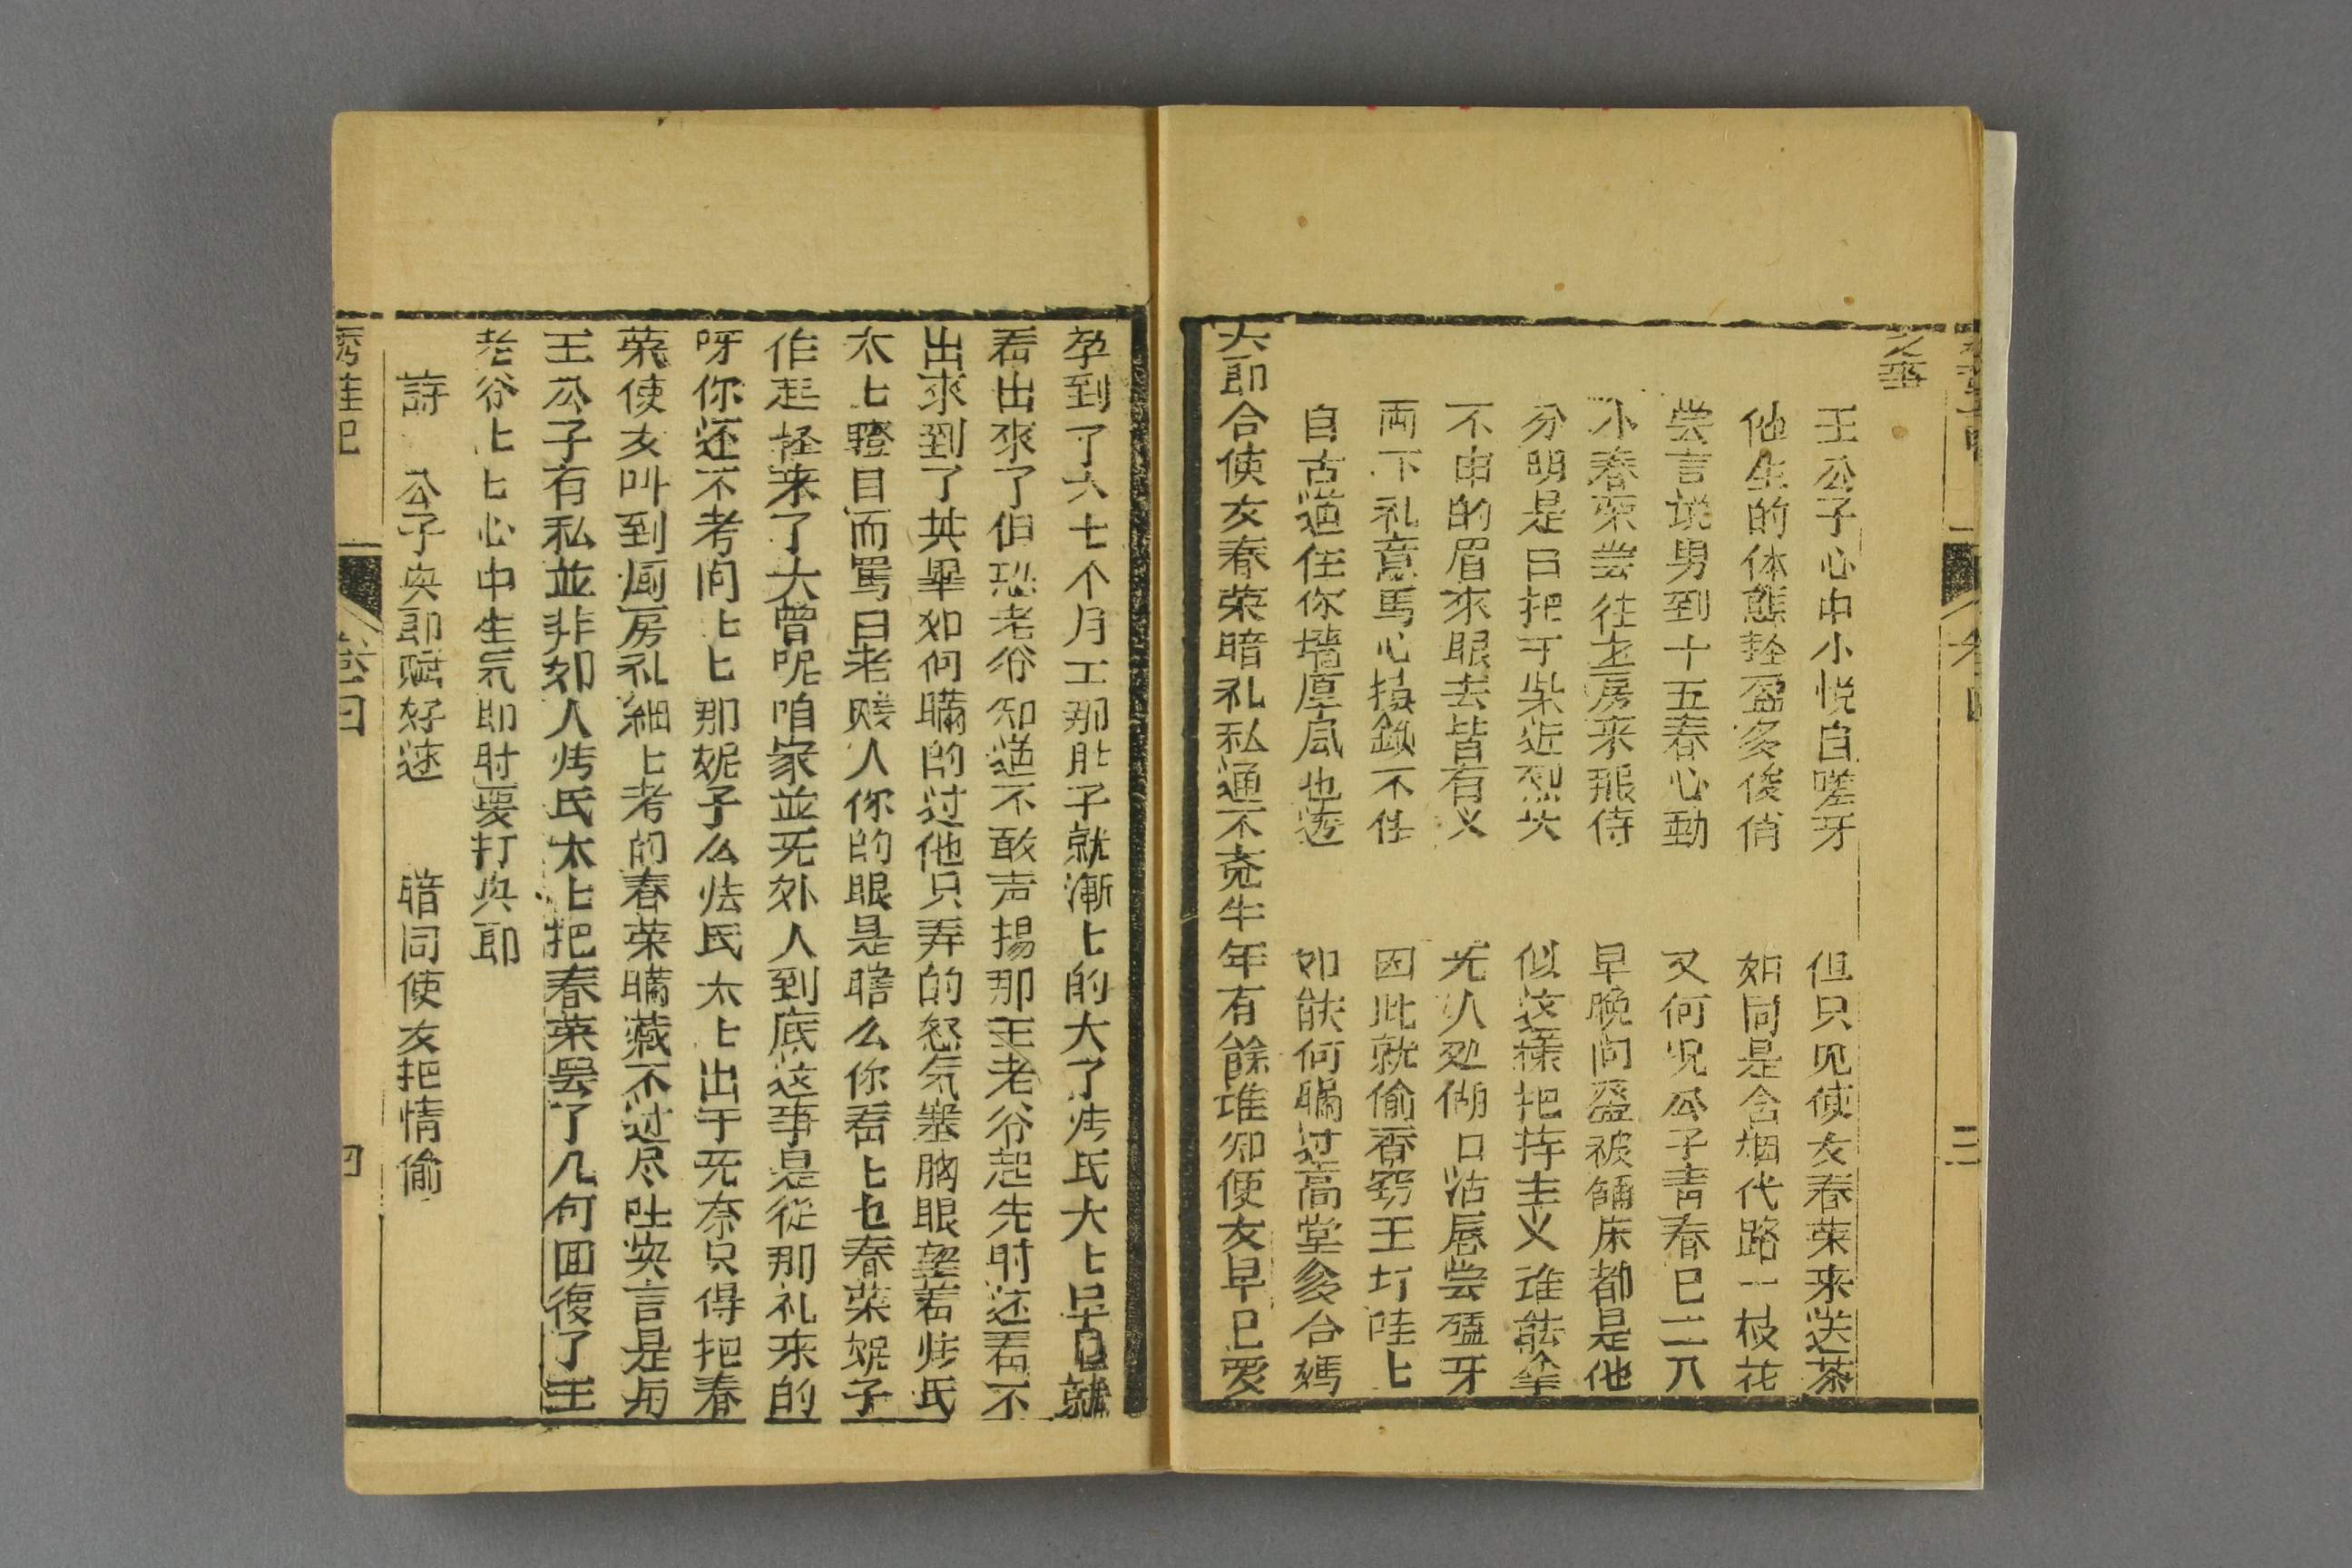 王公子心中小悦自嗟牙 但只见使女春荣来送茶
他生的体態輕盈多俊俏 如同是含烟代路一枝花
尝言说男到十五春心動 又何况公子青春已二八
小春荣尝往主房来服侍 早晚间盛被铺床都是他
分明是日把干柴近烈火 似这樣把持主义谁能拿
不由的眉來眼去皆有义 无人处偷口沾唇尝磕牙
両下礼意馬心猿鎖不住 因此就偷香窃王打哇上
自古道任你墙厚風也透 如能何瞞过高堂爹合媽
大郎合使女春荣暗礼私通不竟半年有餘谁知使女早已受
孕到了六七个月工那肚子就漸上的大了李氏太上早已就
看出來了但恐老爷知道不敢声揚那王老爷起先时还看不
出來到了其畢如何瞞的过他只弄的怒気塞胸眼望着李氏
太上瞪目而罵曰老贱人你的眼是瞎么你看上乜春菜妮子
作起怪来了大曾呢咱家並无外人到底这事是從那礼来的
呀你还不考问上上那妮子么李氏太上出于无奈只得把春
荣使女叫到厨房礼細上考的春荣瞞藏不过尽吐实言是与
王公子有私並非如人李氏太上把春菜罢了几句回復了王
老爷上上心中生気即时要打大郎
詩 公子央郎賦好逑 暗同使女把情偷
卷四
四